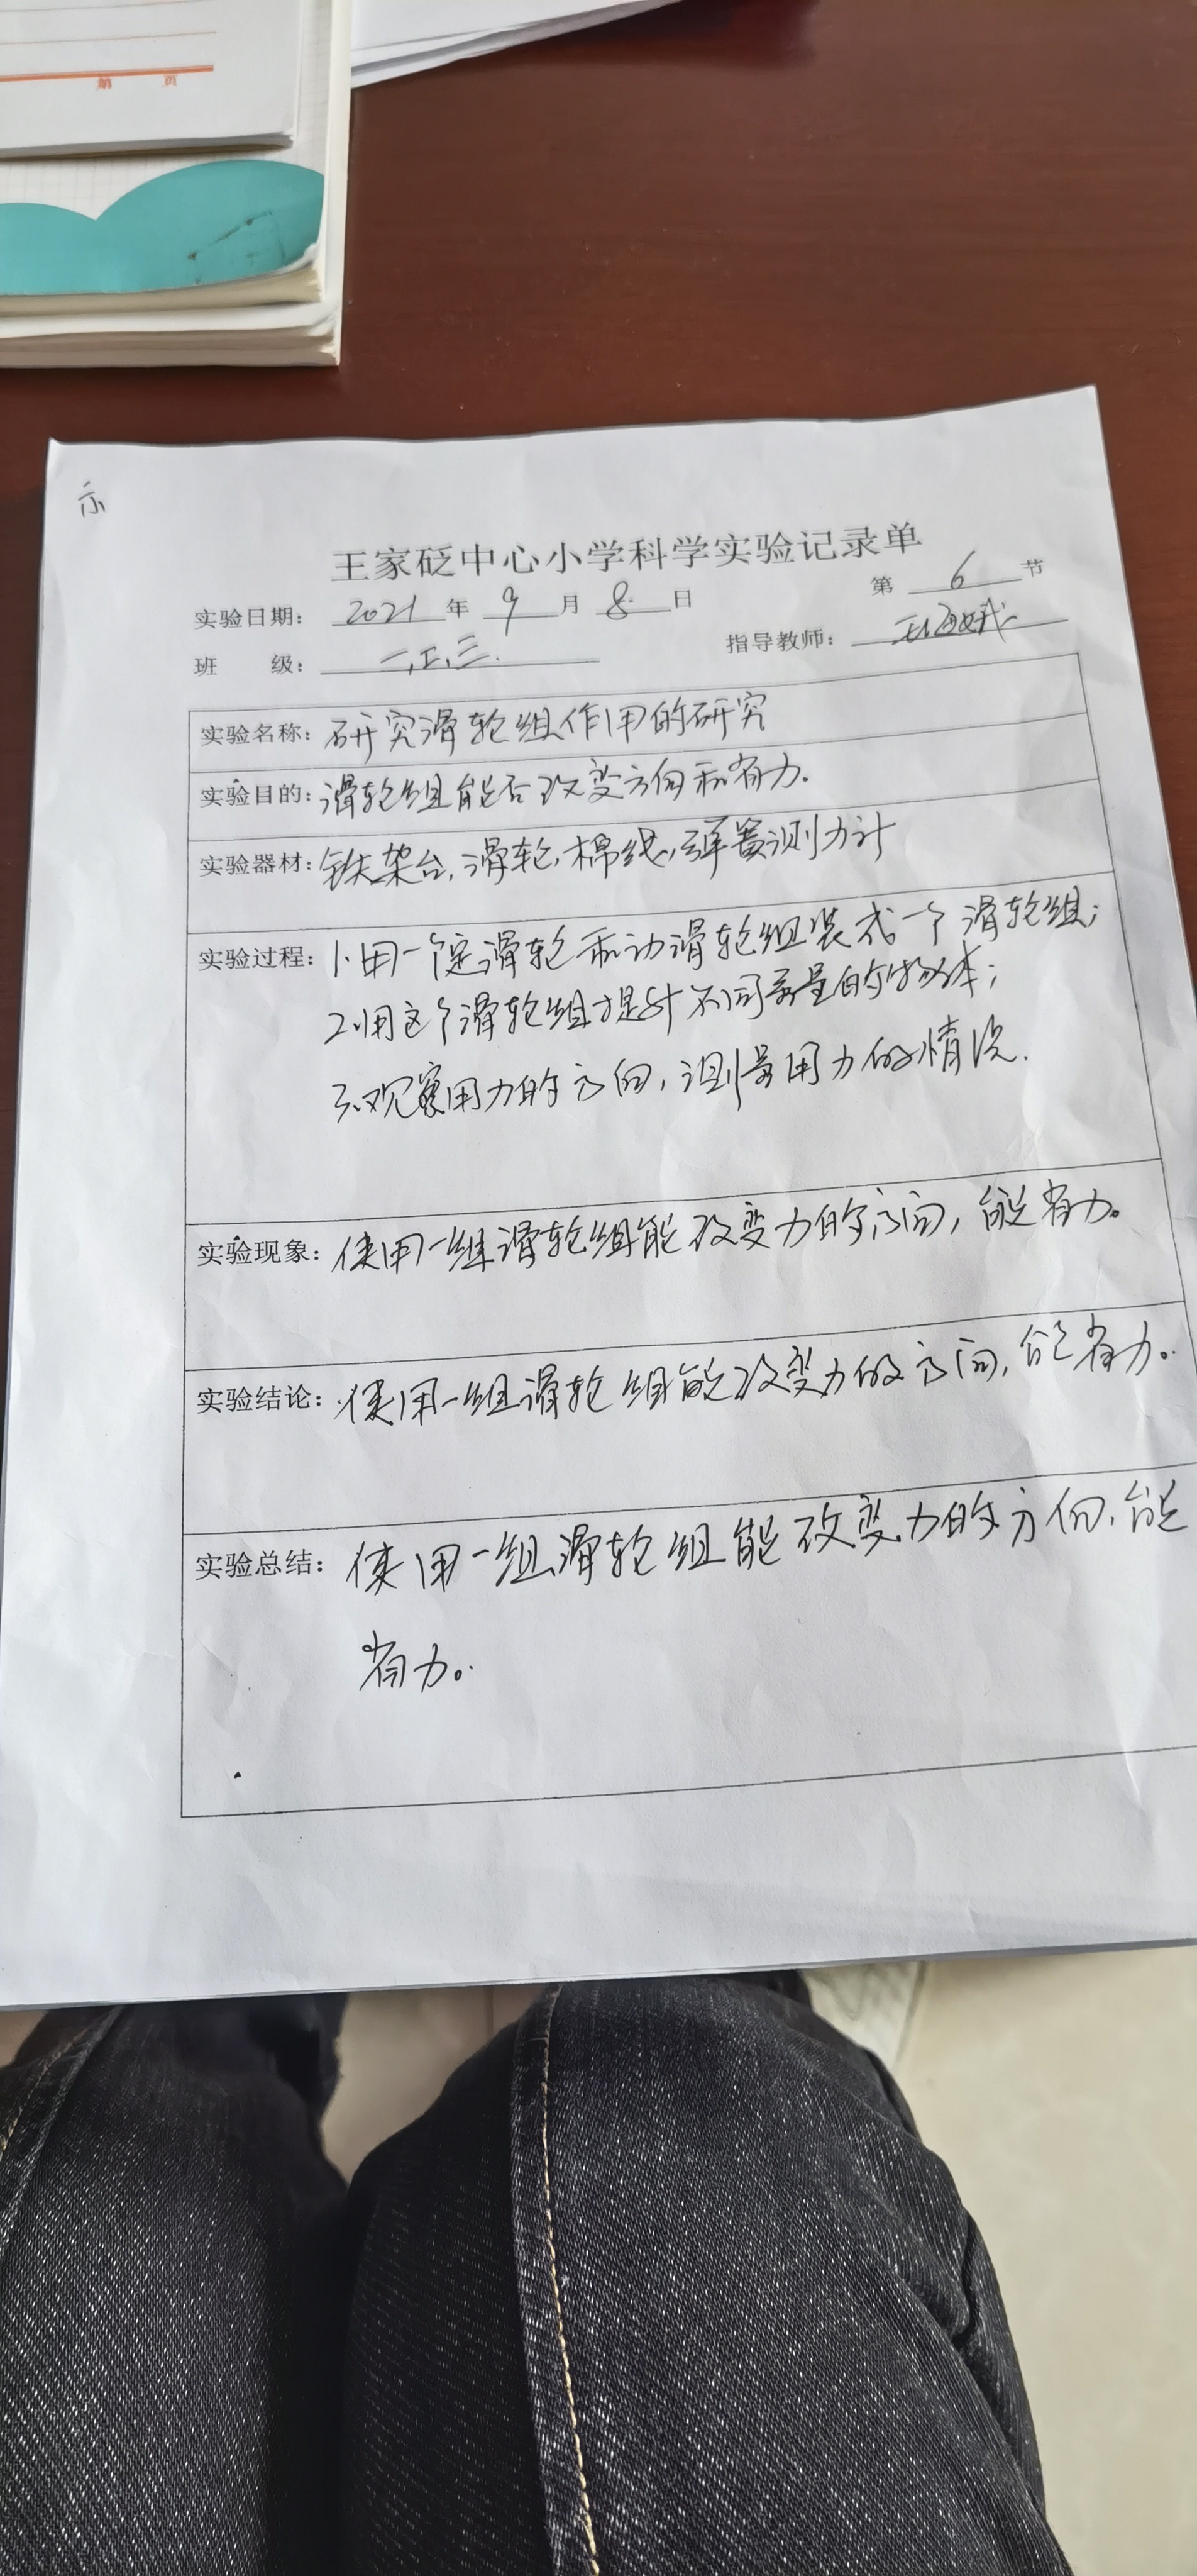 第 页
示
王家砭中心小学科学实验记录单
实验日期: 2021 年 9 月 8 日 第 6 节
班 级: 一,二,三. 指导教师:
实验名称: 研究滑轮组作用的研究
实验目的: 滑轮组能否改变方向和省力.
实验器材: 铁架台,滑轮,棉线,弹簧测力计
实验过程: 1.用一个定滑轮和动滑轮组装成一个滑轮组;
2.用这个滑轮组提升不同重量的物体;
3.观察用力的方向,测量用力的情况.
实验现象: 使用一组滑轮组能改变力的方向,能省力。
实验结论: 使用一组滑轮组能改变力的方向,能省力.
实验总结: 使用一组滑轮组能改变力的方向,能
省力。